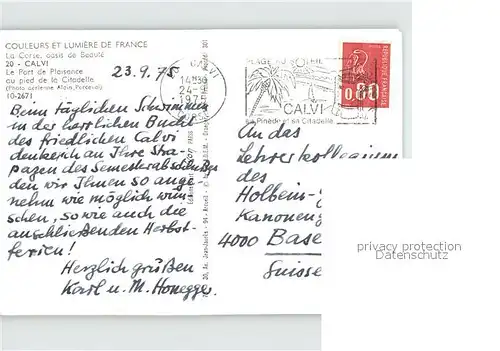 COULEURS ET LUMIÈRE DE FRANCE
La Corse, oasis de Beauté
20 - CALVI
Le Port de Plaisance
au pied de la Citadelle
(Photo aérienne Alain Perceval)
10-2671
23.9.75
Beim täglichen Schwimmen
in der herrlichen Bucht
des friedlichen Calvi
denken ich an Ihre Stra-
pazen des Semesterabschlusses
den wir Ihnen so ange-
nehm wie möglich wün-
schen, so wie auch die
anschließenden Herbst-
ferien!
Herzlich grüßen
Karl u. M. Honegger
CALVI
14H30
24-9
197
PLAGE DU SOLEIL
CALVI
sa Pinède et sa Citadelle
REPUBLIQUE FRANÇAISE
0,80
An das
Lehrerkollegium
des
Holbein-
Kanonen
4000 Base
Suisse
privacy protection
Datenschutz